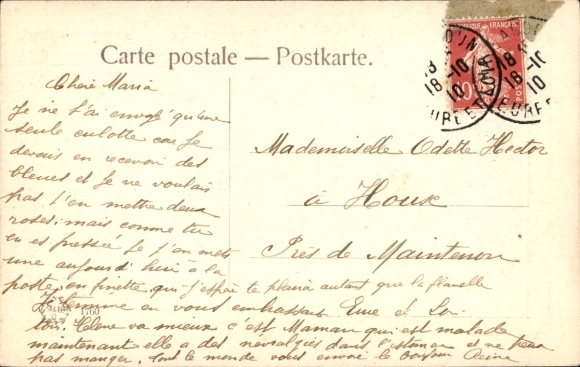 Carte postale — Postkarte.
18-10
10
EURE ET LOIR
Chère Maria
Je ne t'ai envoyé qu'une
seule culotte car je
devais en recevoir des
bleues et je ne voulais
pas t'en mettre deux
roses; mais comme tu
en es pressée je t'en mets
une aujourd'hui à la
poste, en finette, qui j'espère te plaira autant que la flanelle
Je termine en vous embrassant Eme et Loi-
ton. Clere va mieux c'est Maman qui est malade
maintenant elle a des névralgies dans l'estomac et ne peux
pas manger. Tout le monde vous envoie le bonjour Reine
Mademoiselle Odette Hector
à Houx
Près de Maintenon
1760